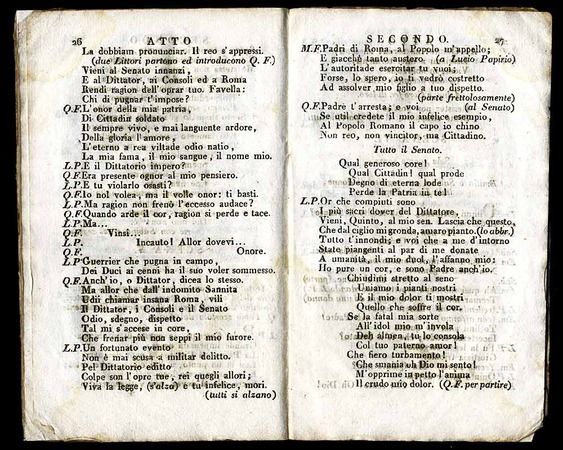 26 ATTO
La dobbiam pronunciar. Il reo s'appressi.
(due Littori partono ed introducono Q. F.)
Vieni al Senato innanzi,
E al Dittator, ai Consoli ed a Roma
Rendi ragion dell'oprar tuo. Favella:
Chi di pugnar t'impose?
Q.F. L'onor della mia patria,
Di Cittadin soldato
Il sempre vivo, e mai languente ardore,
Della gloria l'amore,
L'eterno a rea viltade odio natio,
La mia fama, il mio sangue, il nome mio.
L.P. E il Dittatorio impero?
Q.F. Era presente ognor al mio pensiero.
L.P. E tu violarlo osasti?
Q.F. Io nol volea, ma il volle onor: ti basti.
L.P. Ma ragion non frenò l'eccesso audace?
Q.F. Quando arde il cor, ragion si perde e tace.
L.P. Ma...
Q.F. Vinsi...
L.P. Incauto! Allor dovevi...
Q.F. Onore.
L.P. Guerrier che pugna in campo,
Dei Duci ai cenni ha il suo voler sommesso.
Q.F. Anch'io, o Dittator, dicea lo stesso.
Ma allor che dall'indomito Sannita
Udii chiamar insana Roma, vili
Il Dittator, i Consoli e il Senato
Odio, sdegno, dispetto
Tal mi s'accese in core,
Che frenar più non seppi il mio furore.
L.P. Un fortunato evento
Non è mai scusa a militar delitto.
Pel Dittatorio editto
Colpe son l'opre tue, rei quegli allori;
Viva la legge, (s'alza) e tu infelice, mori.
(tutti si alzano)
SECONDO. 27
M.F. Padri di Roma, al Popolo m'appello;
E giacchè tanto austero (a Lucio Papirio)
L'autoritade esercitar tu vuoi;
Forse, lo spero, io ti vedrò costretto
Ad assolver mio figlio a tuo dispetto.
(parte frettolosamente)
Q.F. Padre t'arresta; e voi (al Senato)
Se util credete il mio infelice esempio,
Al Popolo Romano il capo io chino
Non reo, non vincitor, ma Cittadino.
Tutto il Senato.
Qual generoso core!
Qual Cittadin! qual prode
Degno di eterna lode
Perde la Patria in te!
L.P. Or che compiuti sono
I più sacri dover del Dittatore,
Vieni, Quinto, al mio sen. Lascia che questo,
Che dal ciglio mi gronda, amaro pianto. (lo abbr.)
Tutto t'innondi; e voi che a me d'intorno
State piangenti al par di me donate
A umanità, il mio duol, l'affanno mio:
Ho pure un cor, e sono Padre anch'io.
Chiudimi stretto al seno
Uniamo i pianti nostri
E il mio dolor ti mostri
Quello che soffre il cor.
Se la fatal mia sorte
All'idol mio m'invola
Deh almen, tu lo consola
Col tuo paterno amor!
Che fiero turbamento!
Che smania oh Dio mi sento!
M'opprime in petto l'anima
Il crudo mio dolor. (Q.F. per partire)